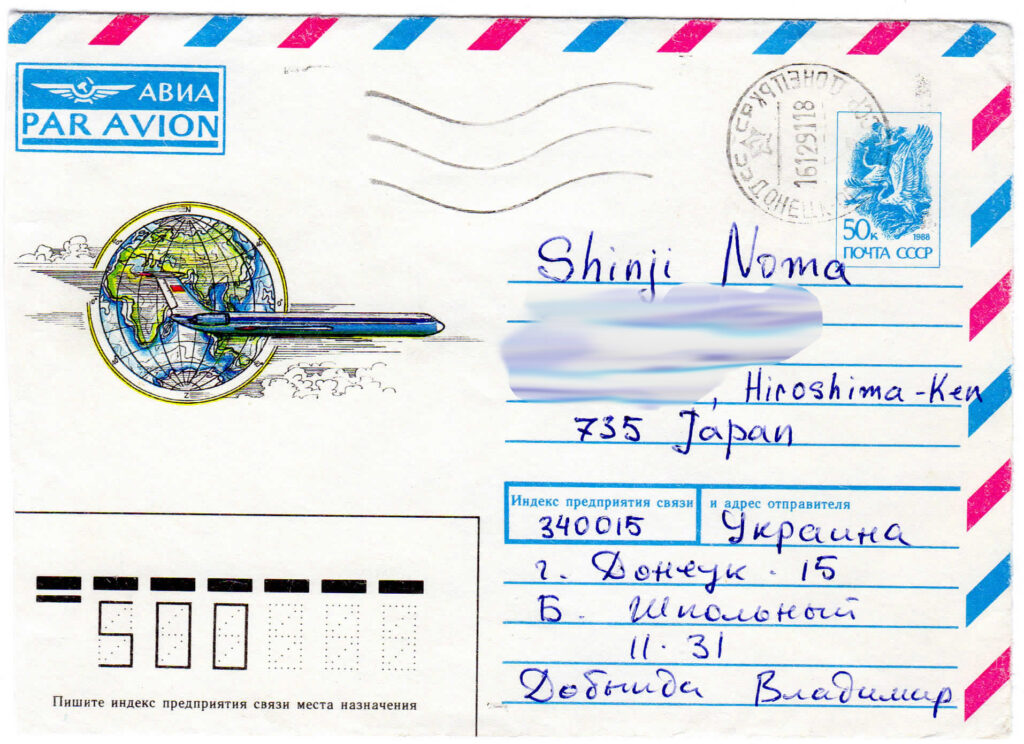 АВИА
PAR AVION
ДОНЕЦЬК
16129118
ДОНЕЦК
50к 1988
ПОЧТА СССР
Shinji Noma
, Hiroshima-Ken
735 Japan
Индекс предприятия связи и адрес отправителя
340015 Украина
г. Донецк. 15
Б. Школьный
11. 31
Добыйда Владимир
500
Пишите индекс предприятия связи места назначения